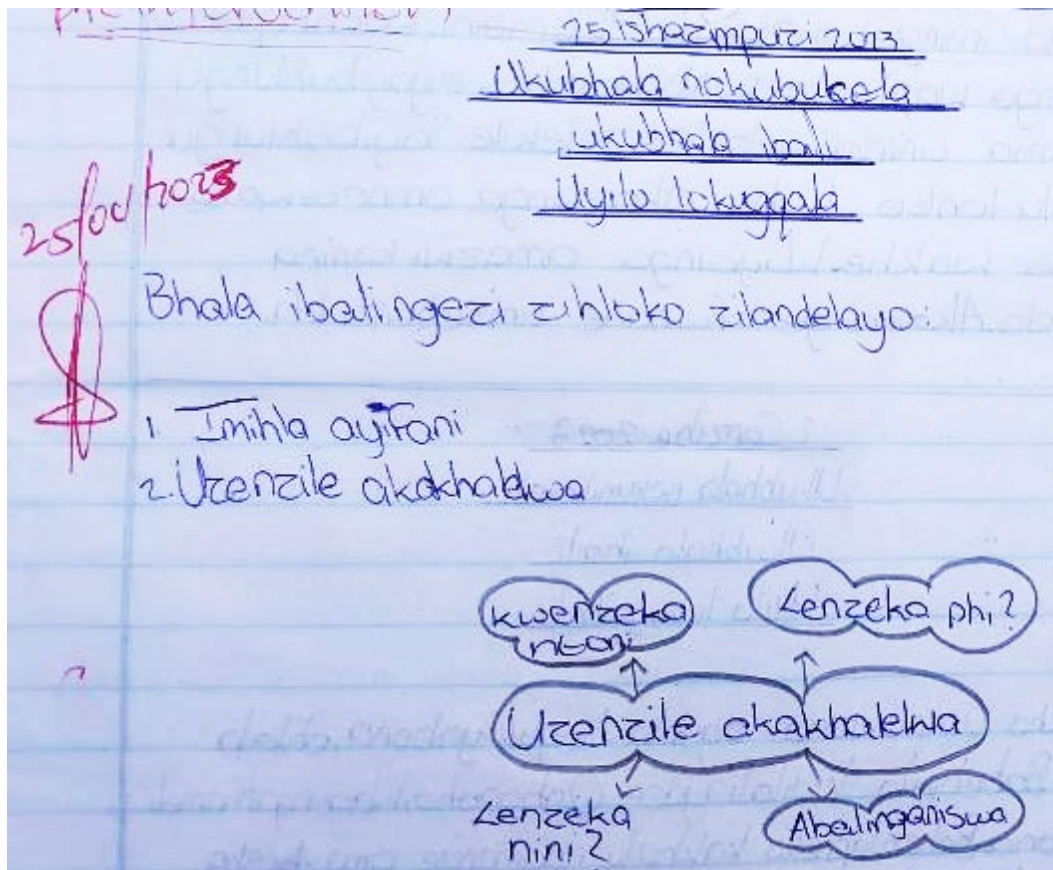 25 Ishazimpuzi 2023
Ukubhala nokubukela
ukubhala ibali
Uyilo lokuqqala
25/00/2023
Bhala ibalingezi zihloko zilandelayo.
1. Imihla ayifani
2. Uzenzile akakhalelwa
kwenzeka
ntoni
Lenzeka phi?
Uzenzile akakhalelwa
Lenzeka
nini?
Abalinganiswa